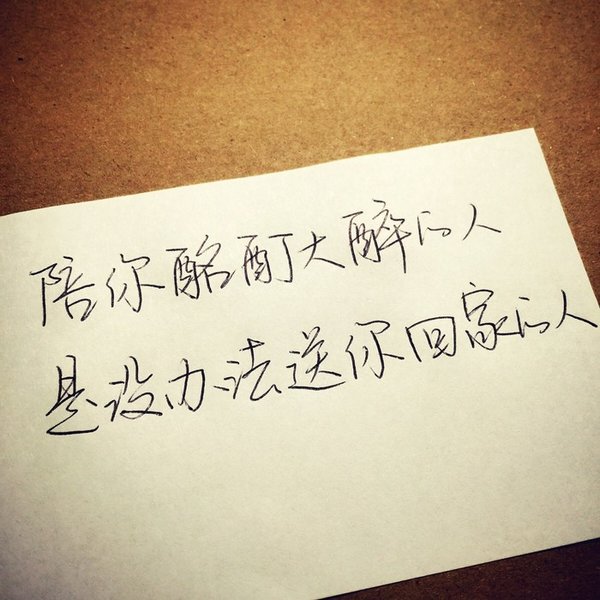 陪你酩酊大醉的人
是没办法送你回家的人